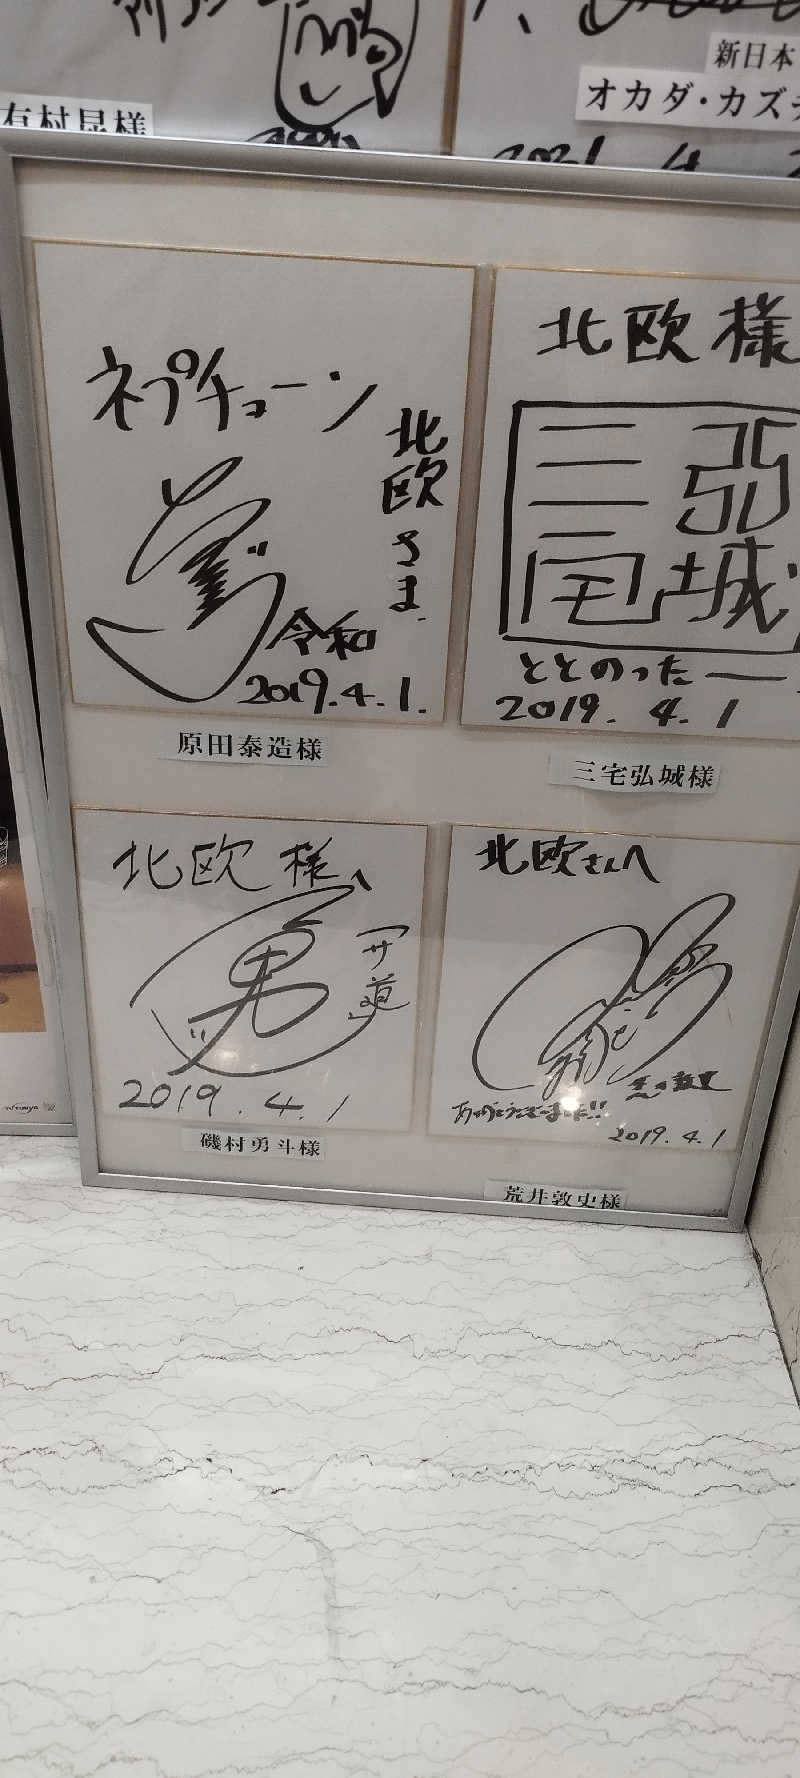 有村昆様
新日本
オカダ・カズチ
2021. 4.
ネプチューン
北欧さま
令和
2019.4.1.
原田泰造様
北欧様
三宅
弘城
ととのったー
2019. 4. 1
三宅弘城様
北欧様へ
勇
「サ道」
2019. 4. 1
磯村勇斗様
北欧さんへ
荒井敦史
ありがとうございました!!
2019. 4. 1
荒井敦史様